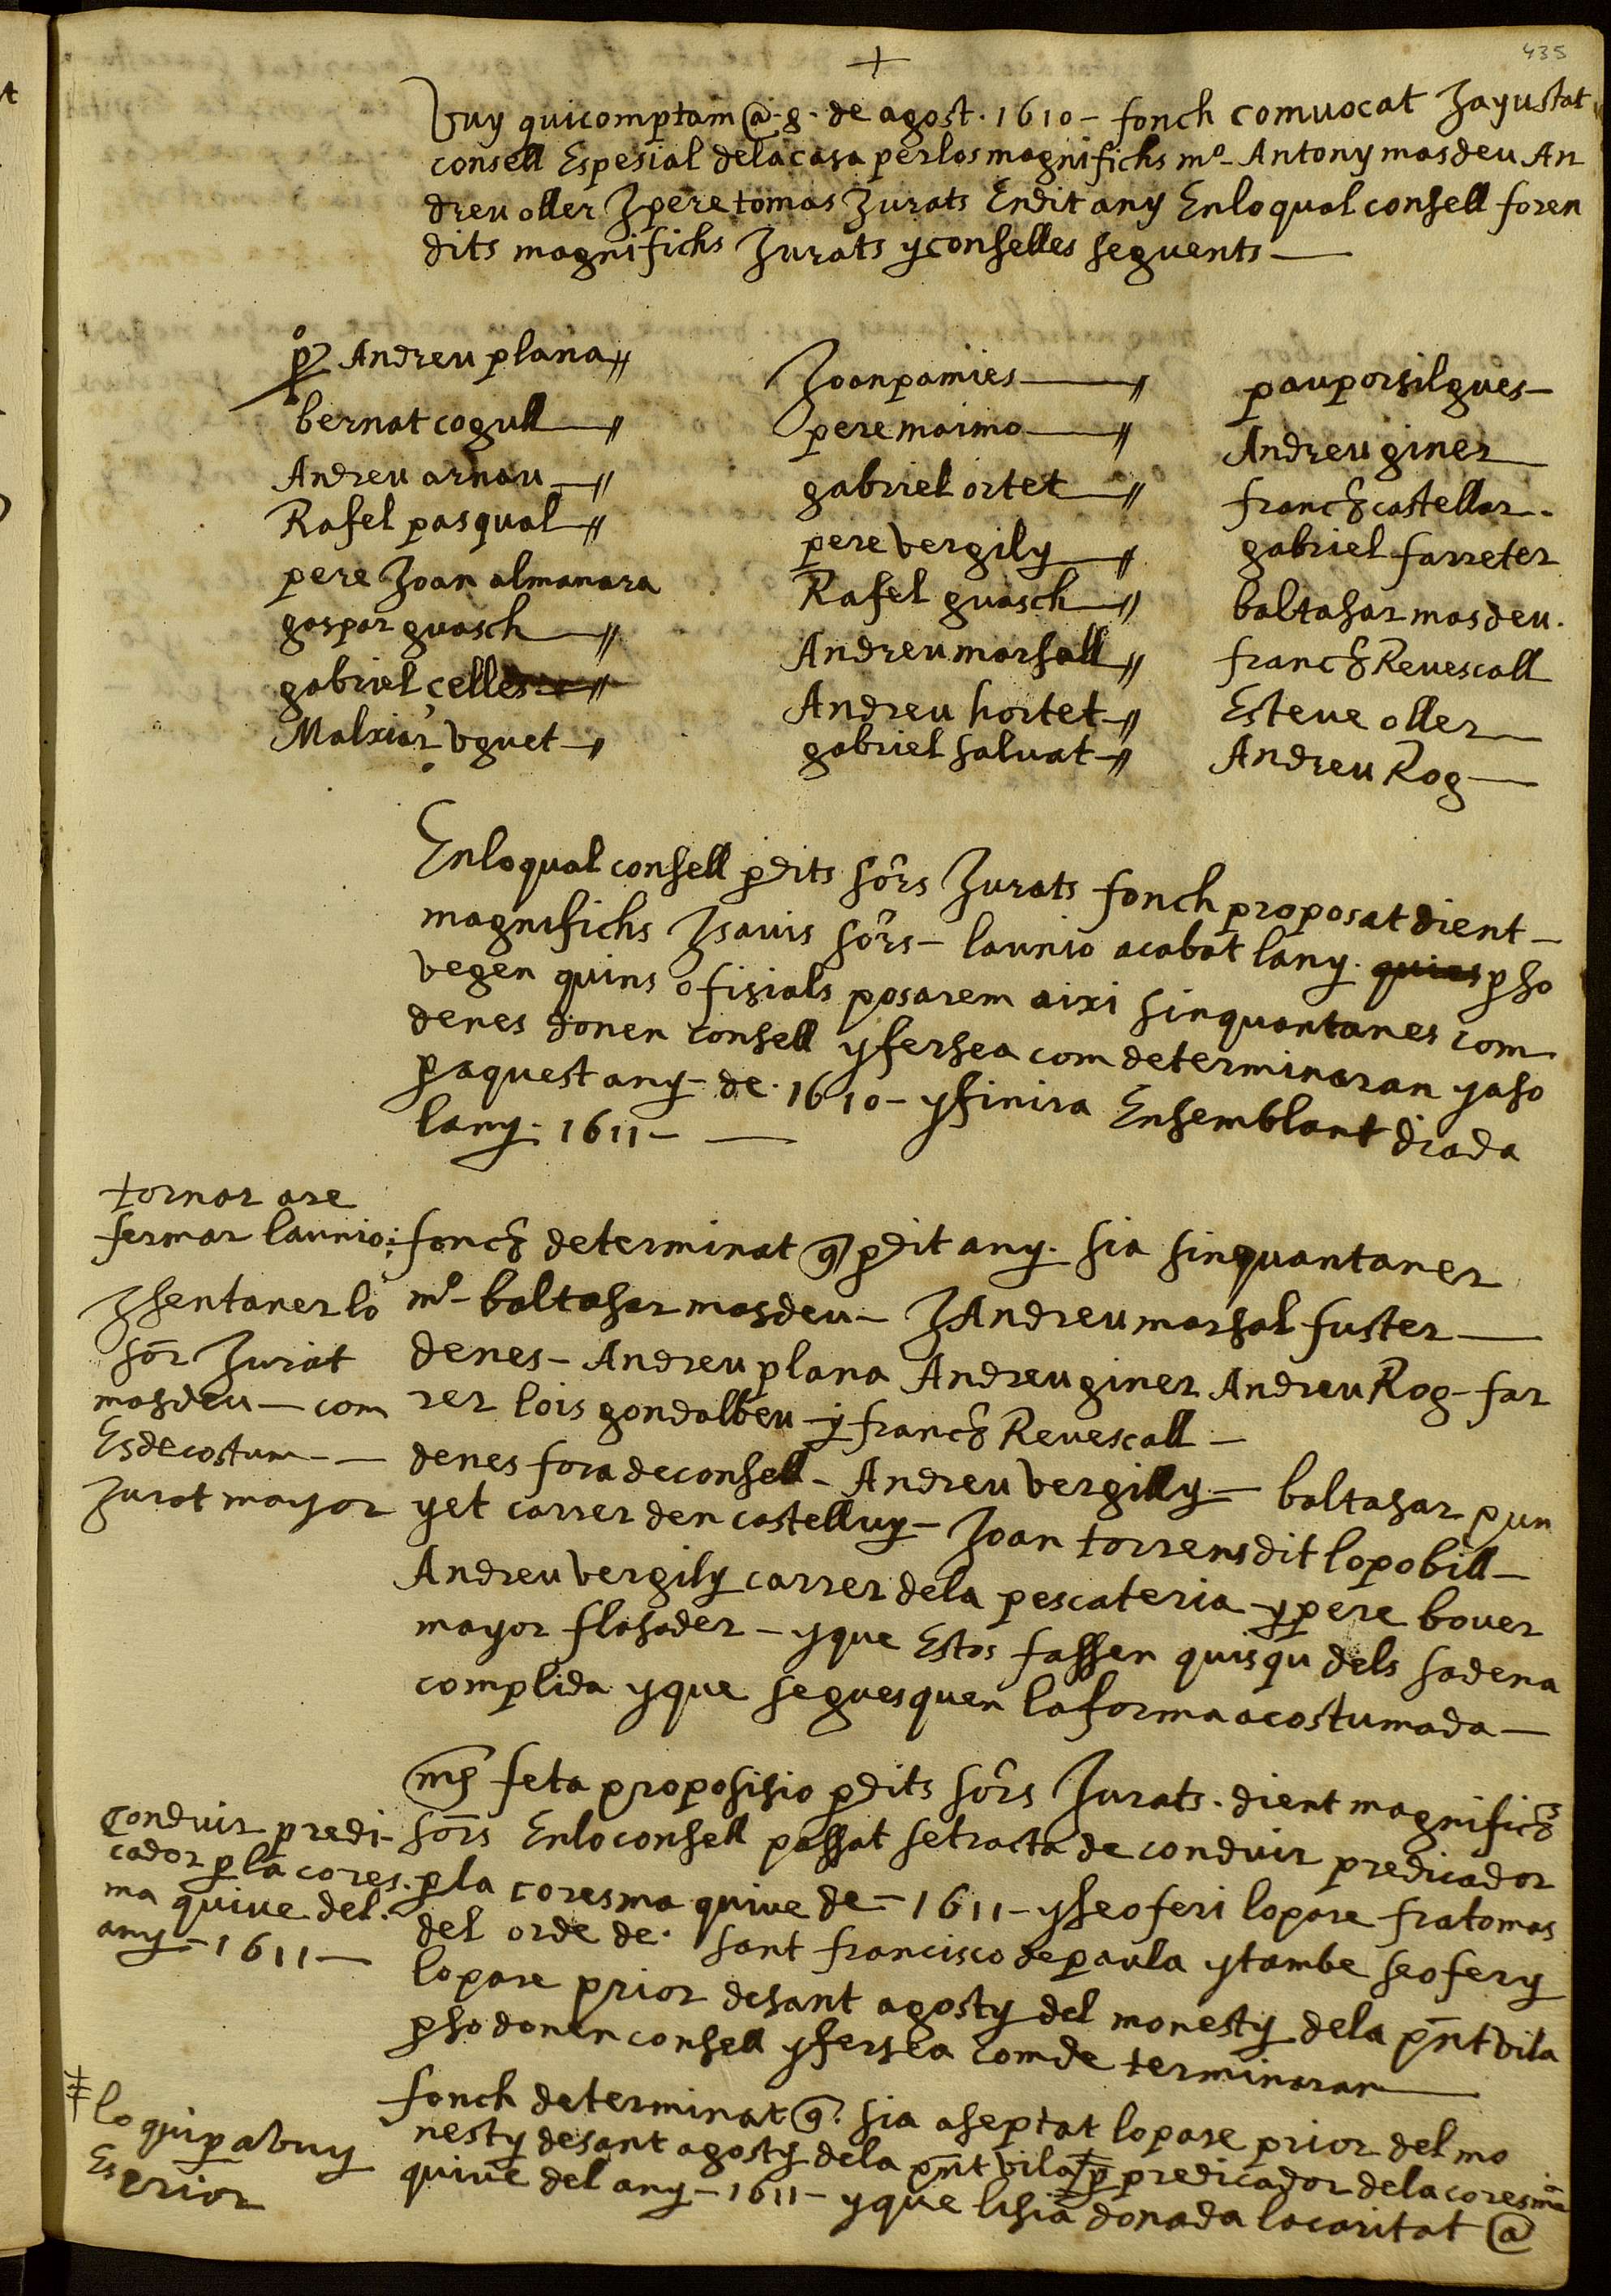 435
+
Vuy quicomptam @ 8 de agost 1610 – fonch comuocat Jayustat
consell Espesial delacasa perlosmagnifichs mº Antony masdeu An
dreu oller J pere tomas Jurats Endit any Enloqual consell foren
dits magnifichs Jurats y conselles seguents
pº Andreu plana
bernat cogull
Andreu arnau
Rafel pasqual
pere Joan almanara
gaspar guasch
gabriel çelles
Malxior vguet
Joan pamies
pere maimo
gabriel ortet
pere vergily
Rafel guasch
Andreu marsall
Andreu hortet
gabriel saluat
pau porsilgues
Andreu giner
franch castellar
gabriel farreter
baltasar masdeu
franch Reuescall
Esteue oller
Andreu Rog
Enloqual consell pdits sors Jurats fonch proposat dient
magnifichs J sauis sors – launio acabat lany. quies pso
vegen quins ofisials posarem aixi sinquantanes com
denes donen consell y fersea com determinaran y aso
paquest any – de 1610 – y finira Ensemblant diada
lany 1611 –
tornar are
fermar launio:
J sentaner lo
sor Jurat
masdeu – com
Es de costum –
Jurat mayor
fonch determinat q pdit any. sia sinquantaner
mº baltasar masdeu – J Andreu marsal fuster
denes – Andreu plana Andreu giner Andreu Rog – far
rer lois gondalbeu – y franch Reuescall –
denes fora de consell – Andreu vergilly – baltasar pun
yet carrer den castelluy – Joan torrens dit lo pobill –
Andreu vergily carrer dela pescateria – y pere bouer
mayor flasader – y que Estos fassen quisqu dels sa dena
complida y que seguesquen la forma acostumada –
Conduir predi-
cador p la cores.
ma quiue del
any – 1611 –
mes feta proposisio pdits sors Jurats. dient magnifichs
sors Enlo consell passat se tracta de conduir predicador
p la coresma quiue de – 1611 – y se oferi lo pare fra tomas
del orde de sant francisco de paula y tambe se ofery
lo pare prior de sant agosty del monesty dela pnt vila
pso donen consell y fersea com de terminaran
lo qui p avuy
Es prior
fonch determinat q. sia aseptat lo pare prior del mo
nesty de sant agosty dela pnt vila p predicador dela coresma
quiue del any – 1611 – y que li sia donada la caritat @